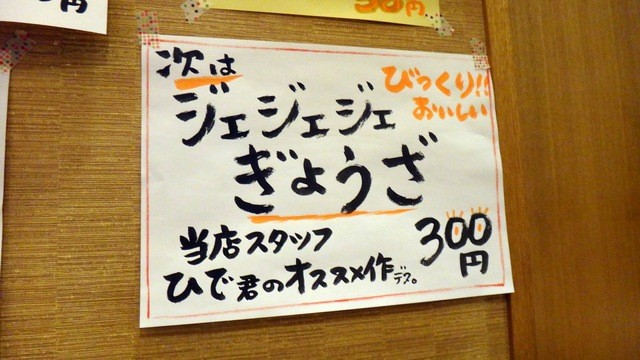 円
50円
次は
びっくり!!
おいしい
ジェジェジェ
ぎょうざ
当店スタッフ
ひで君のオススメ作デス。
300円